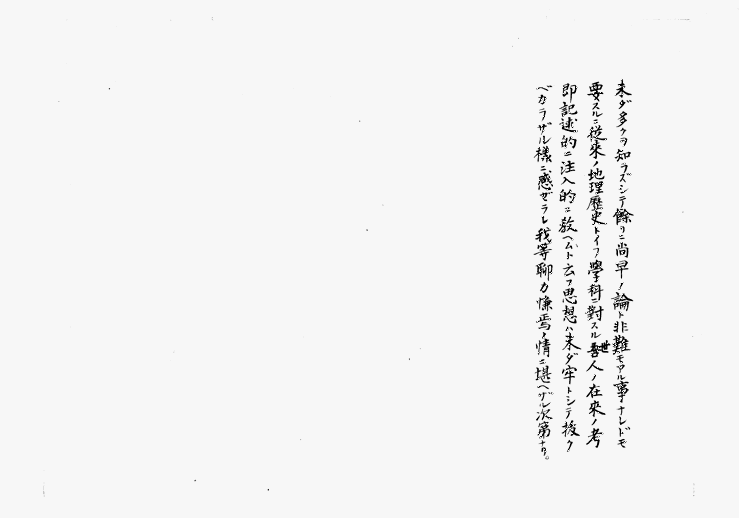 未ダ多クヲ知ラズシテ餘リニ尚早ノ論ト非難モアル事ナレドモ
要スルニ從來ノ地理歷史トイフ學科ニ對スル世人ノ在來ノ考
即記述的ニ注入的ニ敎ヘムト云フ思想ハ未ダ牢トシテ拔ク
ベカラザル樣ニ感ゼラレ我等聊カ慊焉ノ情ニ堪ヘザル次第ナリ。